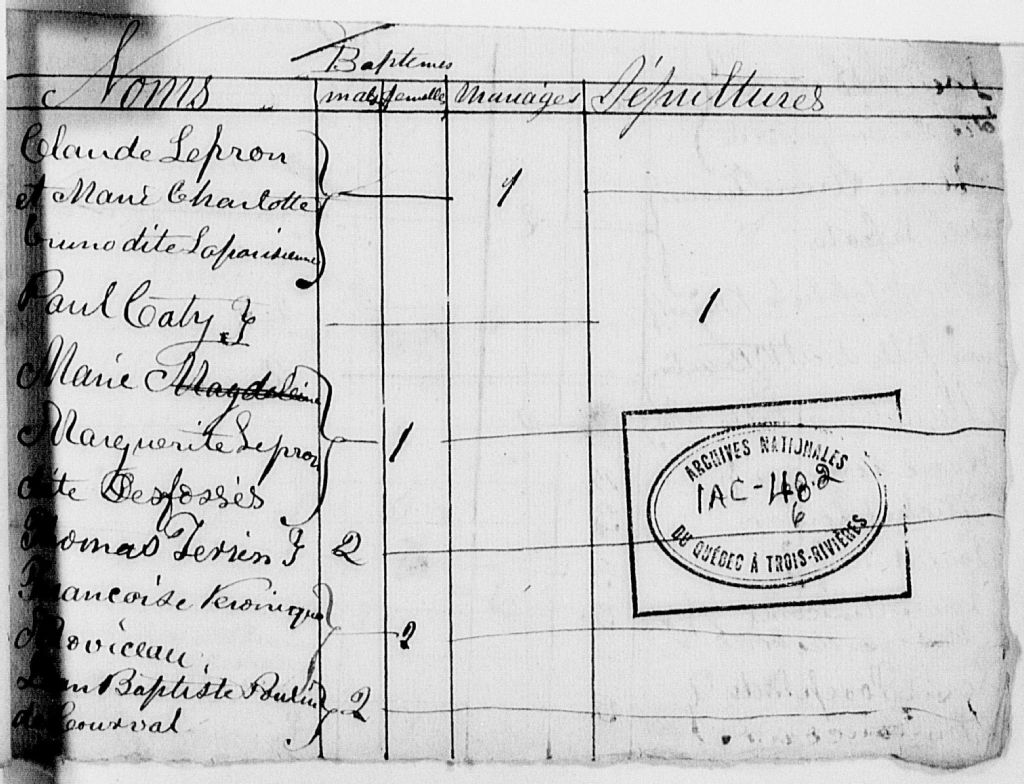 Baptemes
Noms males femelles Mariages Sépultures
Claude Lepron
et Marie Charlotte 1
Bruno dite Laparisienne
Paul Caty 1
Marie Magdeleine
Marguerite Lepron 1
dite Desfossés
Thomas Terrien 2
Francoise Veronique
2
Jean Baptiste Poulin 2
de Courval
ARCHIVES NATIONALES
1AC-482
6
DU QUÉBEC À TROIS-RIVIÈRES